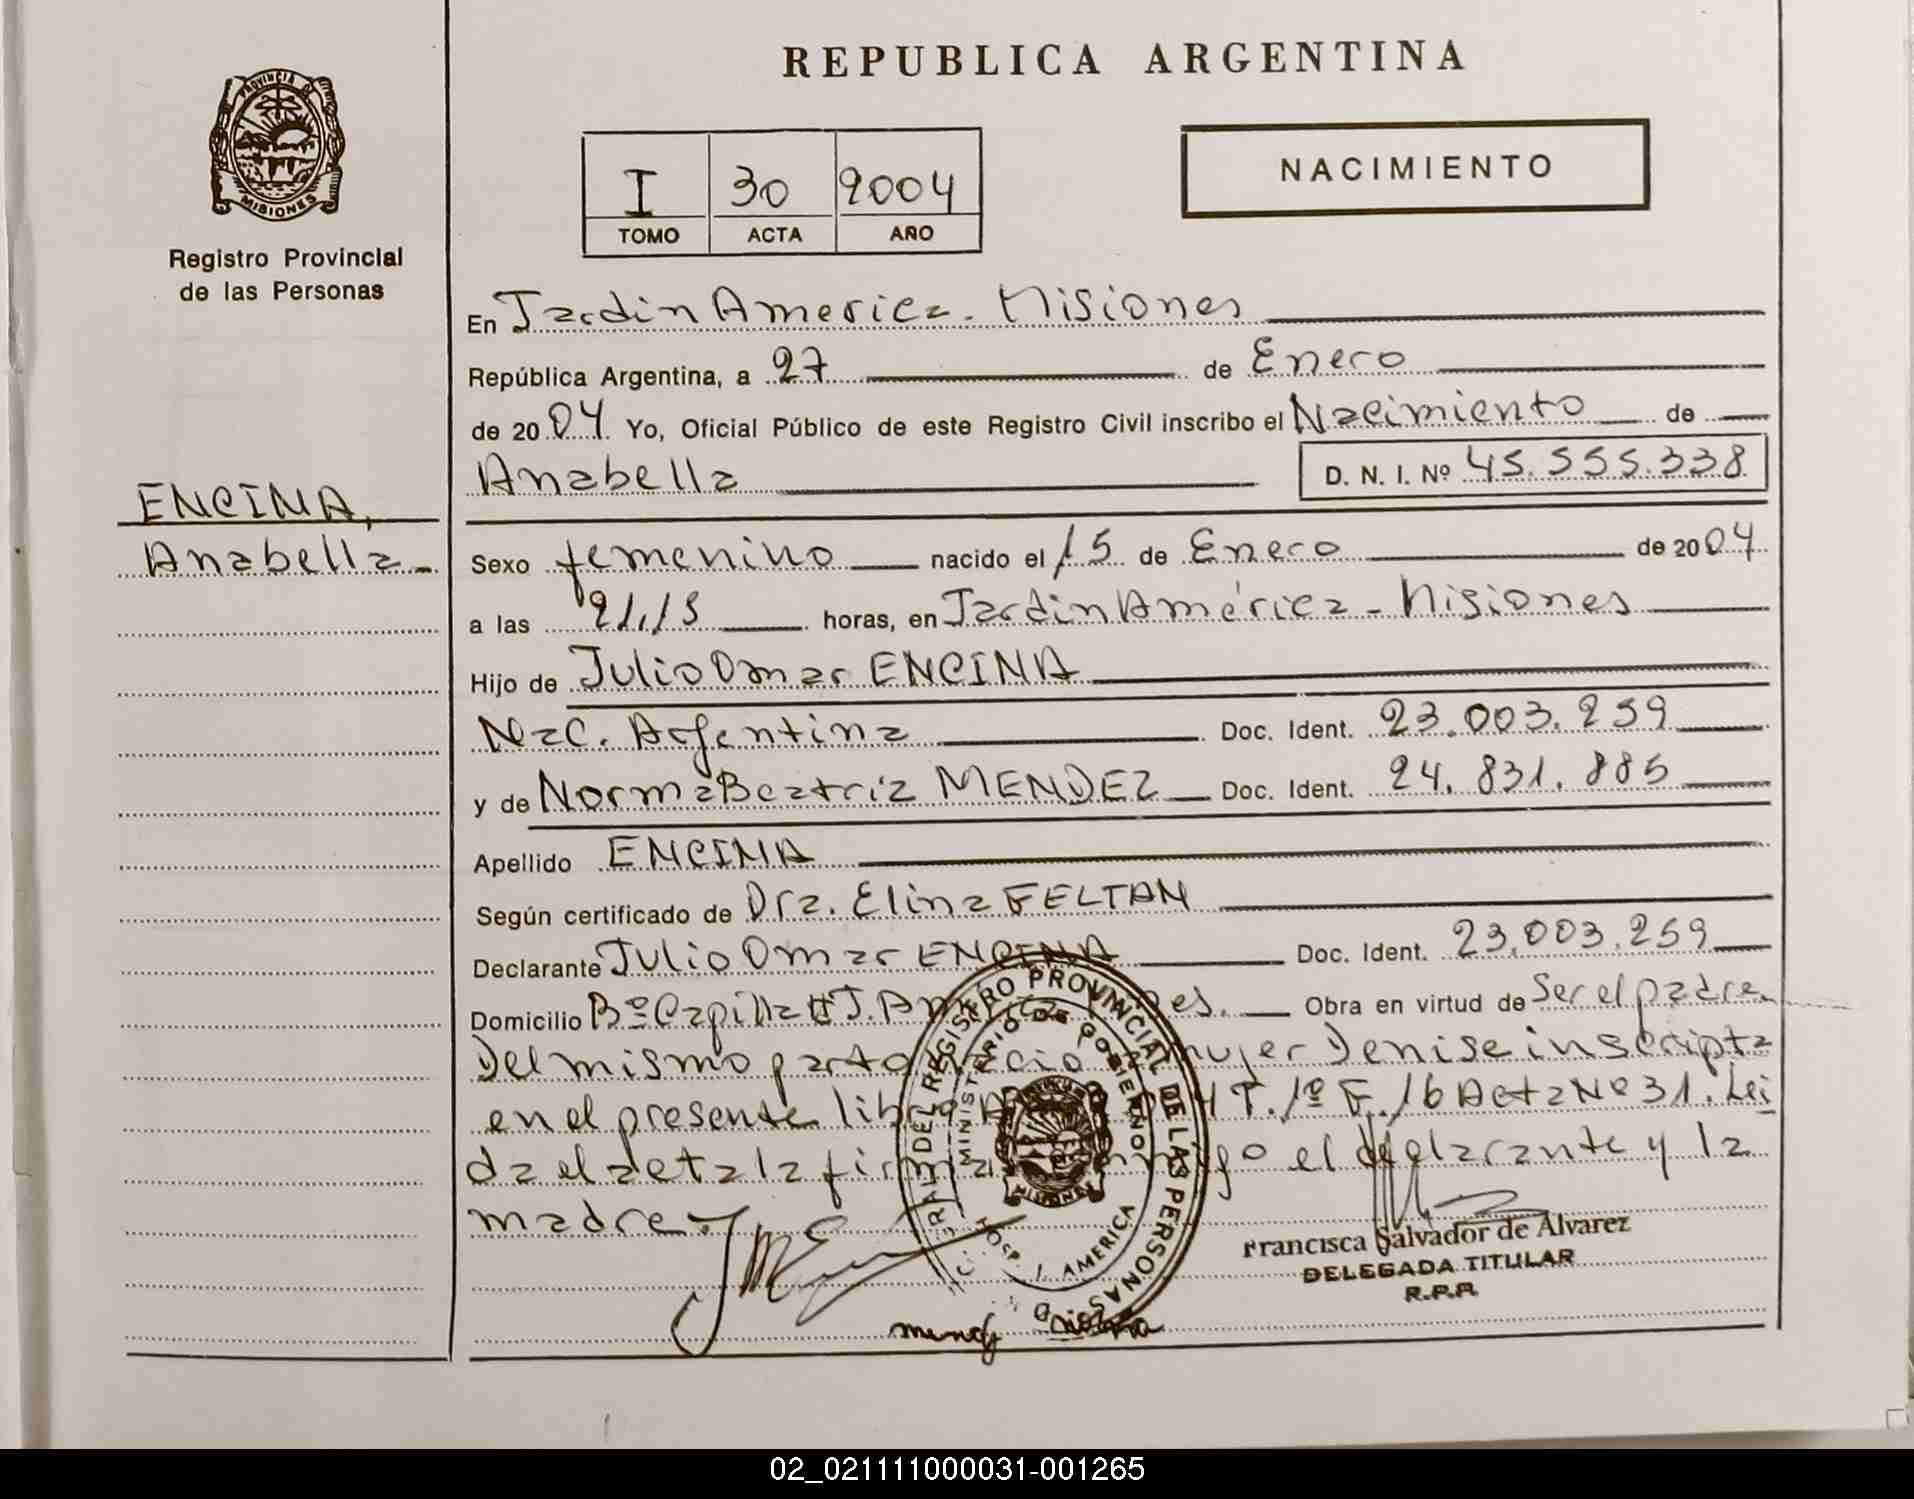 REPUBLICA ARGENTINA
PROVINCIA DE
MISIONES
Registro Provincial
de las Personas
I 30 2004
TOMO ACTA AÑO
NACIMIENTO
En Jardin America - Misiones
República Argentina, a 27 de Enero
de 2004 Yo, Oficial Público de este Registro Civil inscribo el Nacimiento de
Anabella D. N. I. Nº 45.555.338
ENCINA,
Anabella
Sexo femenino nacido el 15 de Enero de 2004
a las 21,15 horas, en Jardin América - Misiones
Hijo de Julio Omar ENCINA
Nac. Argentina Doc. Ident. 23.003.259
y de Norma Beatriz MENDEZ Doc. Ident. 24.831.885
Apellido ENCINA
Según certificado de Dra. Elina FELTAN
Declarante Julio Omar ENCINA Doc. Ident. 23.003.259
Domicilio Bº Capilla J. Obra en virtud de Ser el padre
Del mismo parto mujer Denise inscripta
en el presente T. 1º F. 16 Acta Nº 31. Lei
da el acta la el declarante y la
madre.
REGISTRO PROVINCIAL DE LAS PERSONAS
MINISTERIO DE GOBIERNO
MISIONES
HOSP. J. AMERICA
Francisca Salvador de Alvarez
DELEGADA TITULAR
R.P.P.
02_021111000031-001265